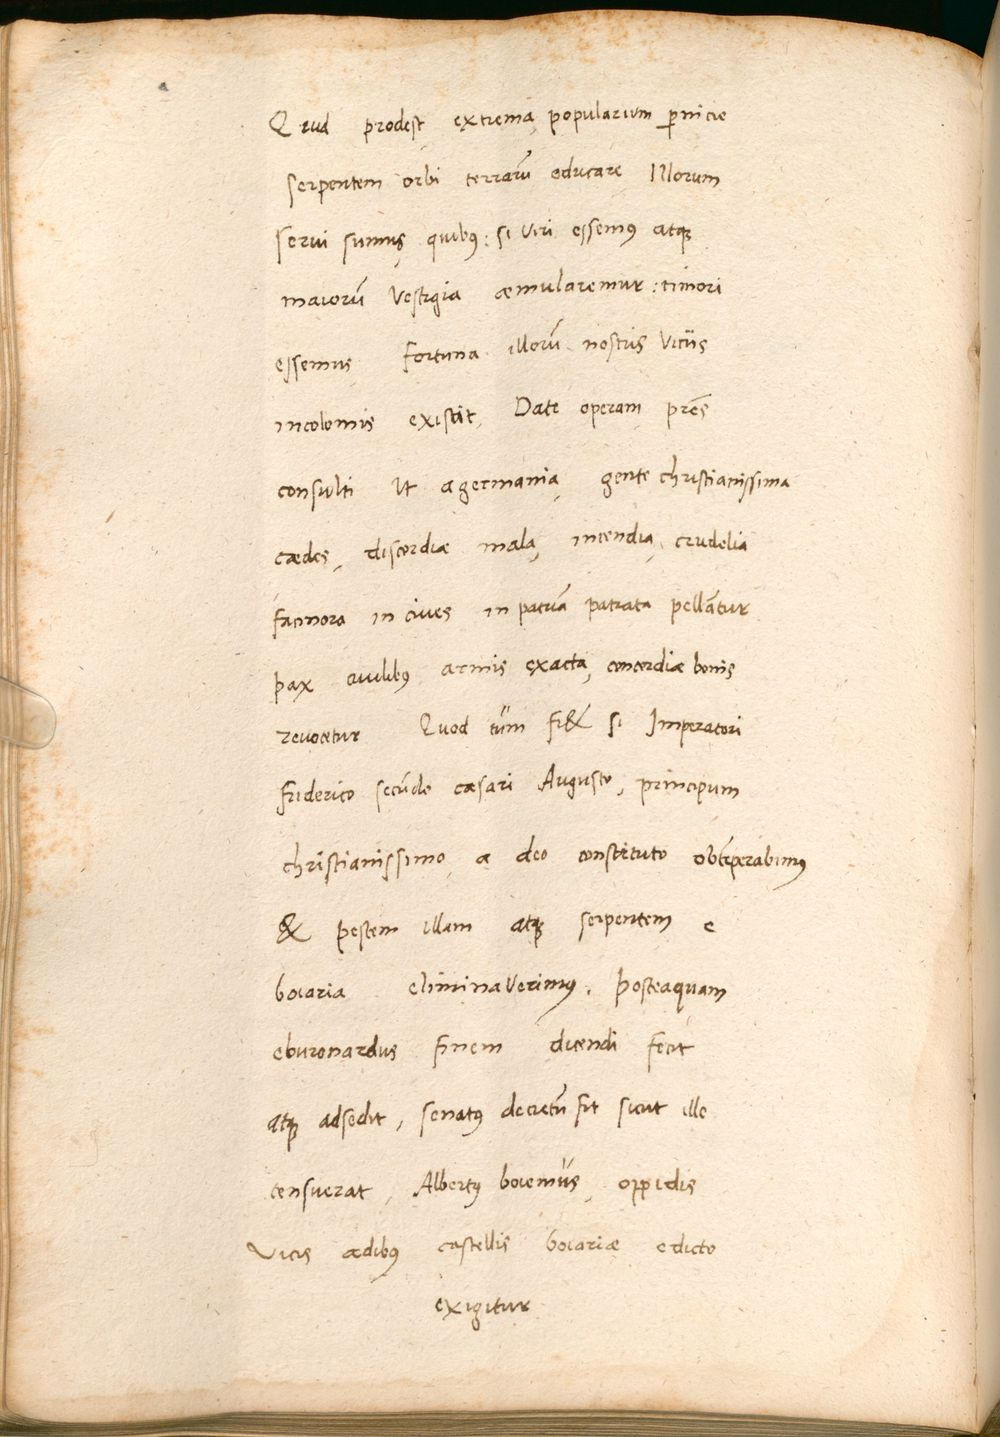 Quid prodest extrema popularium ꝑnicie
serpentem orbi terrarū educare Illorum
serui sumus quibꝰ: si Viri essemꝰ atqꝫ
maiorū Vestigia æmularemur: timori
essemus Fortuna illorū nostris Vitiis
incolomis existit, Date operam prēs
consulti Vt a germania, gente christianissima
cædes, discordiæ mala, incendia, crudelia
facinora in ciues in patriā patrata pellātur
pax ciuilibꝰ armis exacta, concordiæ bonis
reuocetur Quod tūm fi& si Imperatori
Friderico secūdo cæsari Augusto, principum
christianissimo, a deo constituto obtēperabimus
& pestem illam atqꝫ serpentem e
boiaria eliminaVerimꝰ. Posteaquam
eburonardus finem dicendi fecit
atqꝫ adsedit, senatꝰ decretū fit sicut ille
censuerat, Albertꝰ boiemus, oppidis
Vicis ædibꝰ castellis boiariæ edicto
exigitur